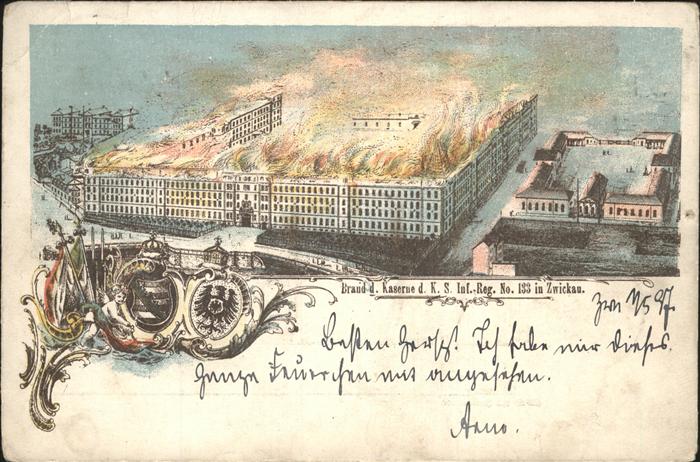 Brand d. Kaserne d. K. S. Inf.-Reg. No. 133 in Zwickau.
Zwi 1/5 97.
Besten Hersch! Ich habe mir dieses
ganze Feuerchen mit angesehen.
Arno.